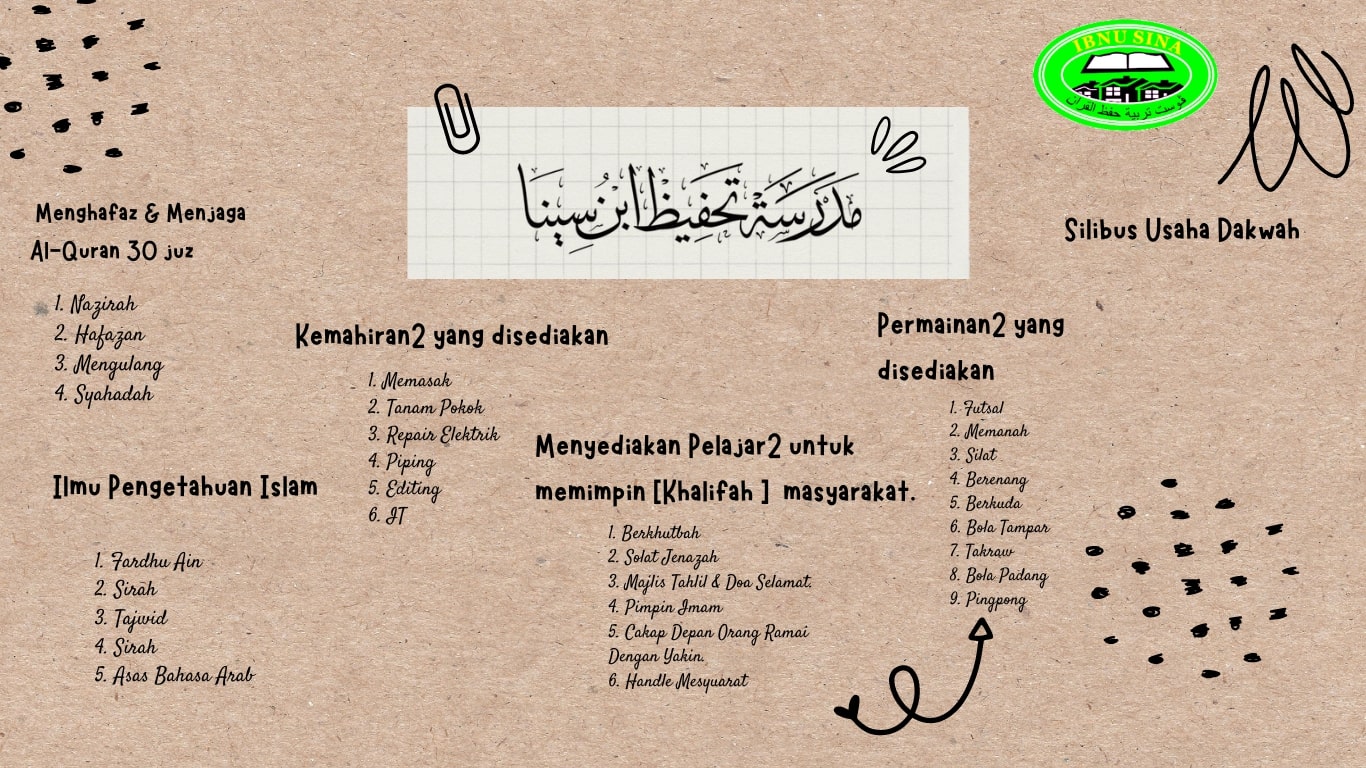 IBNU SINA
فوست تربية حفظ القرآن
مَدْرَسَةْ تَحْفِيظْ ابْنُ سِينَا
Menghafaz & Menjaga
Al-Quran 30 juz
1. Nazirah
2. Hafazan
3. Mengulang
4. Syahadah
Ilmu Pengetahuan Islam
1. Fardhu Ain
2. Sirah
3. Tajwid
4. Sirah
5. Asas Bahasa Arab
Kemahiran2 yang disediakan
1. Memasak
2. Tanam Pokok
3. Repair Elektrik
4. Piping
5. Editing
6. IT
Menyediakan Pelajar2 untuk
memimpin [Khalifah ] masyarakat.
1. Berkhutbah
2. Solat Jenazah
3. Majlis Tahlil & Doa Selamat.
4. Pimpin Imam
5. Cakap Depan Orang Ramai
Dengan Yakin.
6. Handle Mesyuarat
Silibus Usaha Dakwah
Permainan2 yang
disediakan
1. Futsal
2. Memanah
3. Silat
4. Berenang
5. Berkuda
6. Bola Tampar
7. Takraw
8. Bola Padang
9. Pingpong